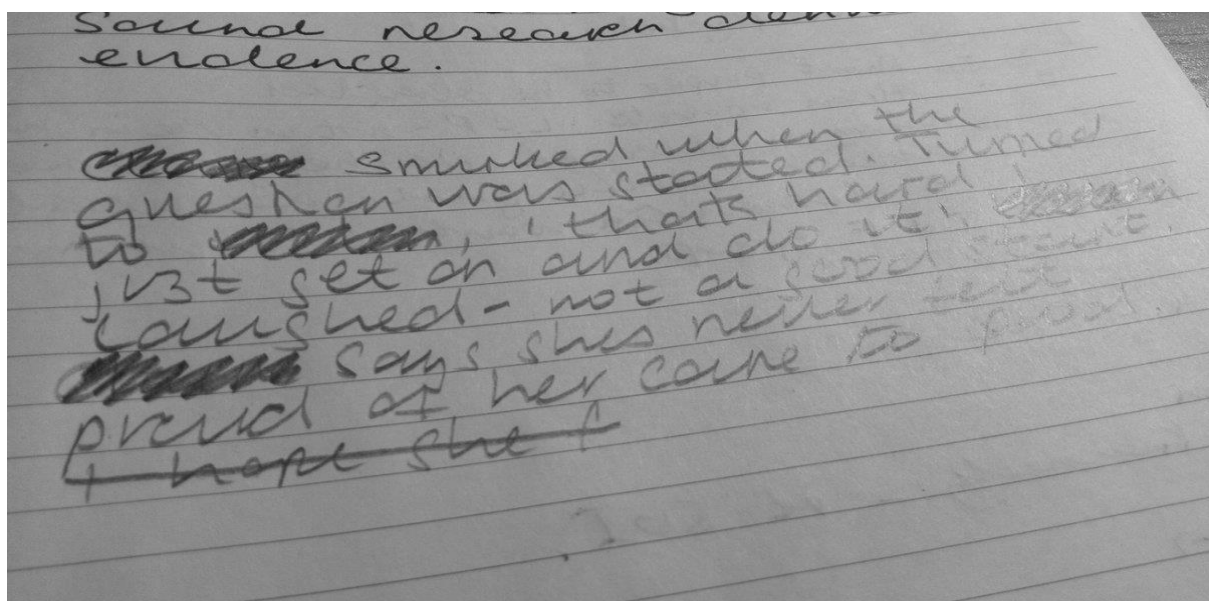 Sound research
evidence.
smirked when the
question was stated. Turned
to , 'thats hard'
just get on and do it',
laughed - not a good start.
says shes never felt
proud of her care to
I hope she f